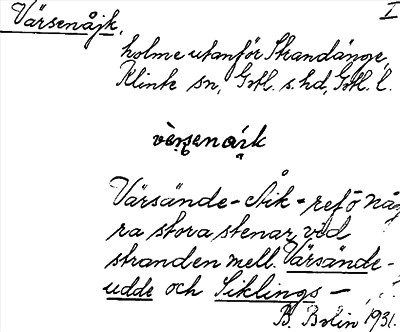 Värsenåjk, I
holme utanför Strandänge,
Klinte sn, Gotl. s. hd, Gotl. l.
Värsände-Åik-ref ö någ
ra stora stenar vid
stranden mell. Värsände-
udde och Siklings-
B. Bolin 1931.